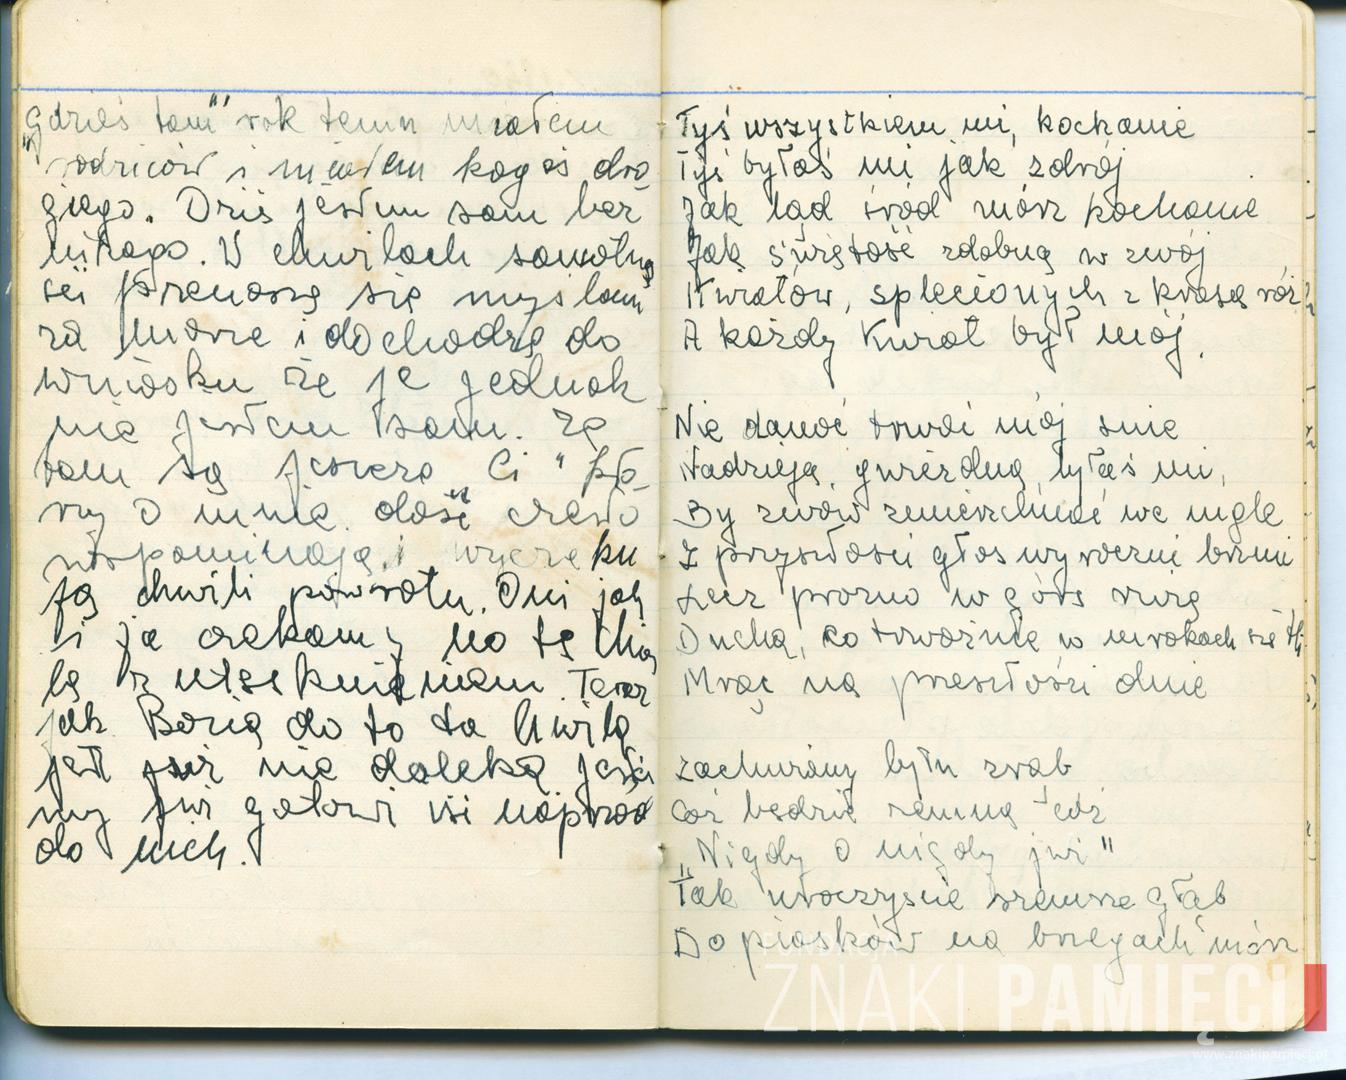 "gdzieś tam" rok temu miałem
rodziców i miałem kogoś dro-
giego. Dziś jestem sam bez
nikogo. W chwilach samotno
ści przenoszę się myślami
za morze i dochodzę do
wniosku że ja jednak
nie jestem sam. Że
tam są jeszcze Ci "
o mnie dość często
wspominają i wyczeku
ją chwili powrotu. Oni jak
i ja czekamy na tę chwi
lę z utęsknieniem. Teraz
jak Bozia da to ta hwila
jest już nie daleka jeste
my już gotowi iśi naprzod
do nich.
Tyś wszystkiem mi, kochanie
Tyś byłaś mi jak zdrój
Jak ląd śród mórz kochanie
Jak świętość zdobną w zwój
Kwiatów, splecionych z krasą róż
A każdy kwiat był mój.
Nie danoć trwać mój śnie
Nadzieją gwiezdną byłaś mi,
By znów zmierzchnąć we mgle
Z przyszłości głos wyroczni brzmi
Lecz prózno w górę rwię
Ducha, co trwożnie w mrokach się tli
Mrąc na przeszłości dnie
zachwiany bytu zrąb
Cóż będzie ze mną cóż
"Nigdy o nigdy już"
Tak uroczyście szemrze głąb
Do piasków na brzegach mórz
FUNDACJA
ZNAKI PAMIĘCI
www.znakipamieci.pl